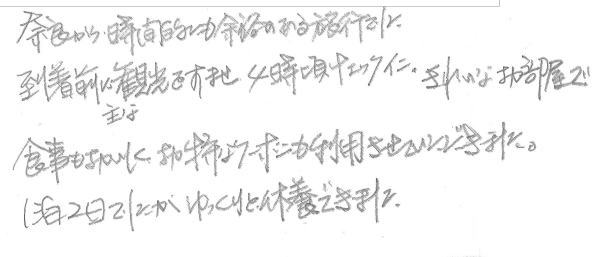 奈良から時間的にも余裕のある旅行でした。
到着前に主な観光をすませ 4時頃チェックイン。きれいなお部屋で
食事もおいしく、お得なクーポンも利用させていただきました。
1泊2日でしたが ゆっくりと休養できました。